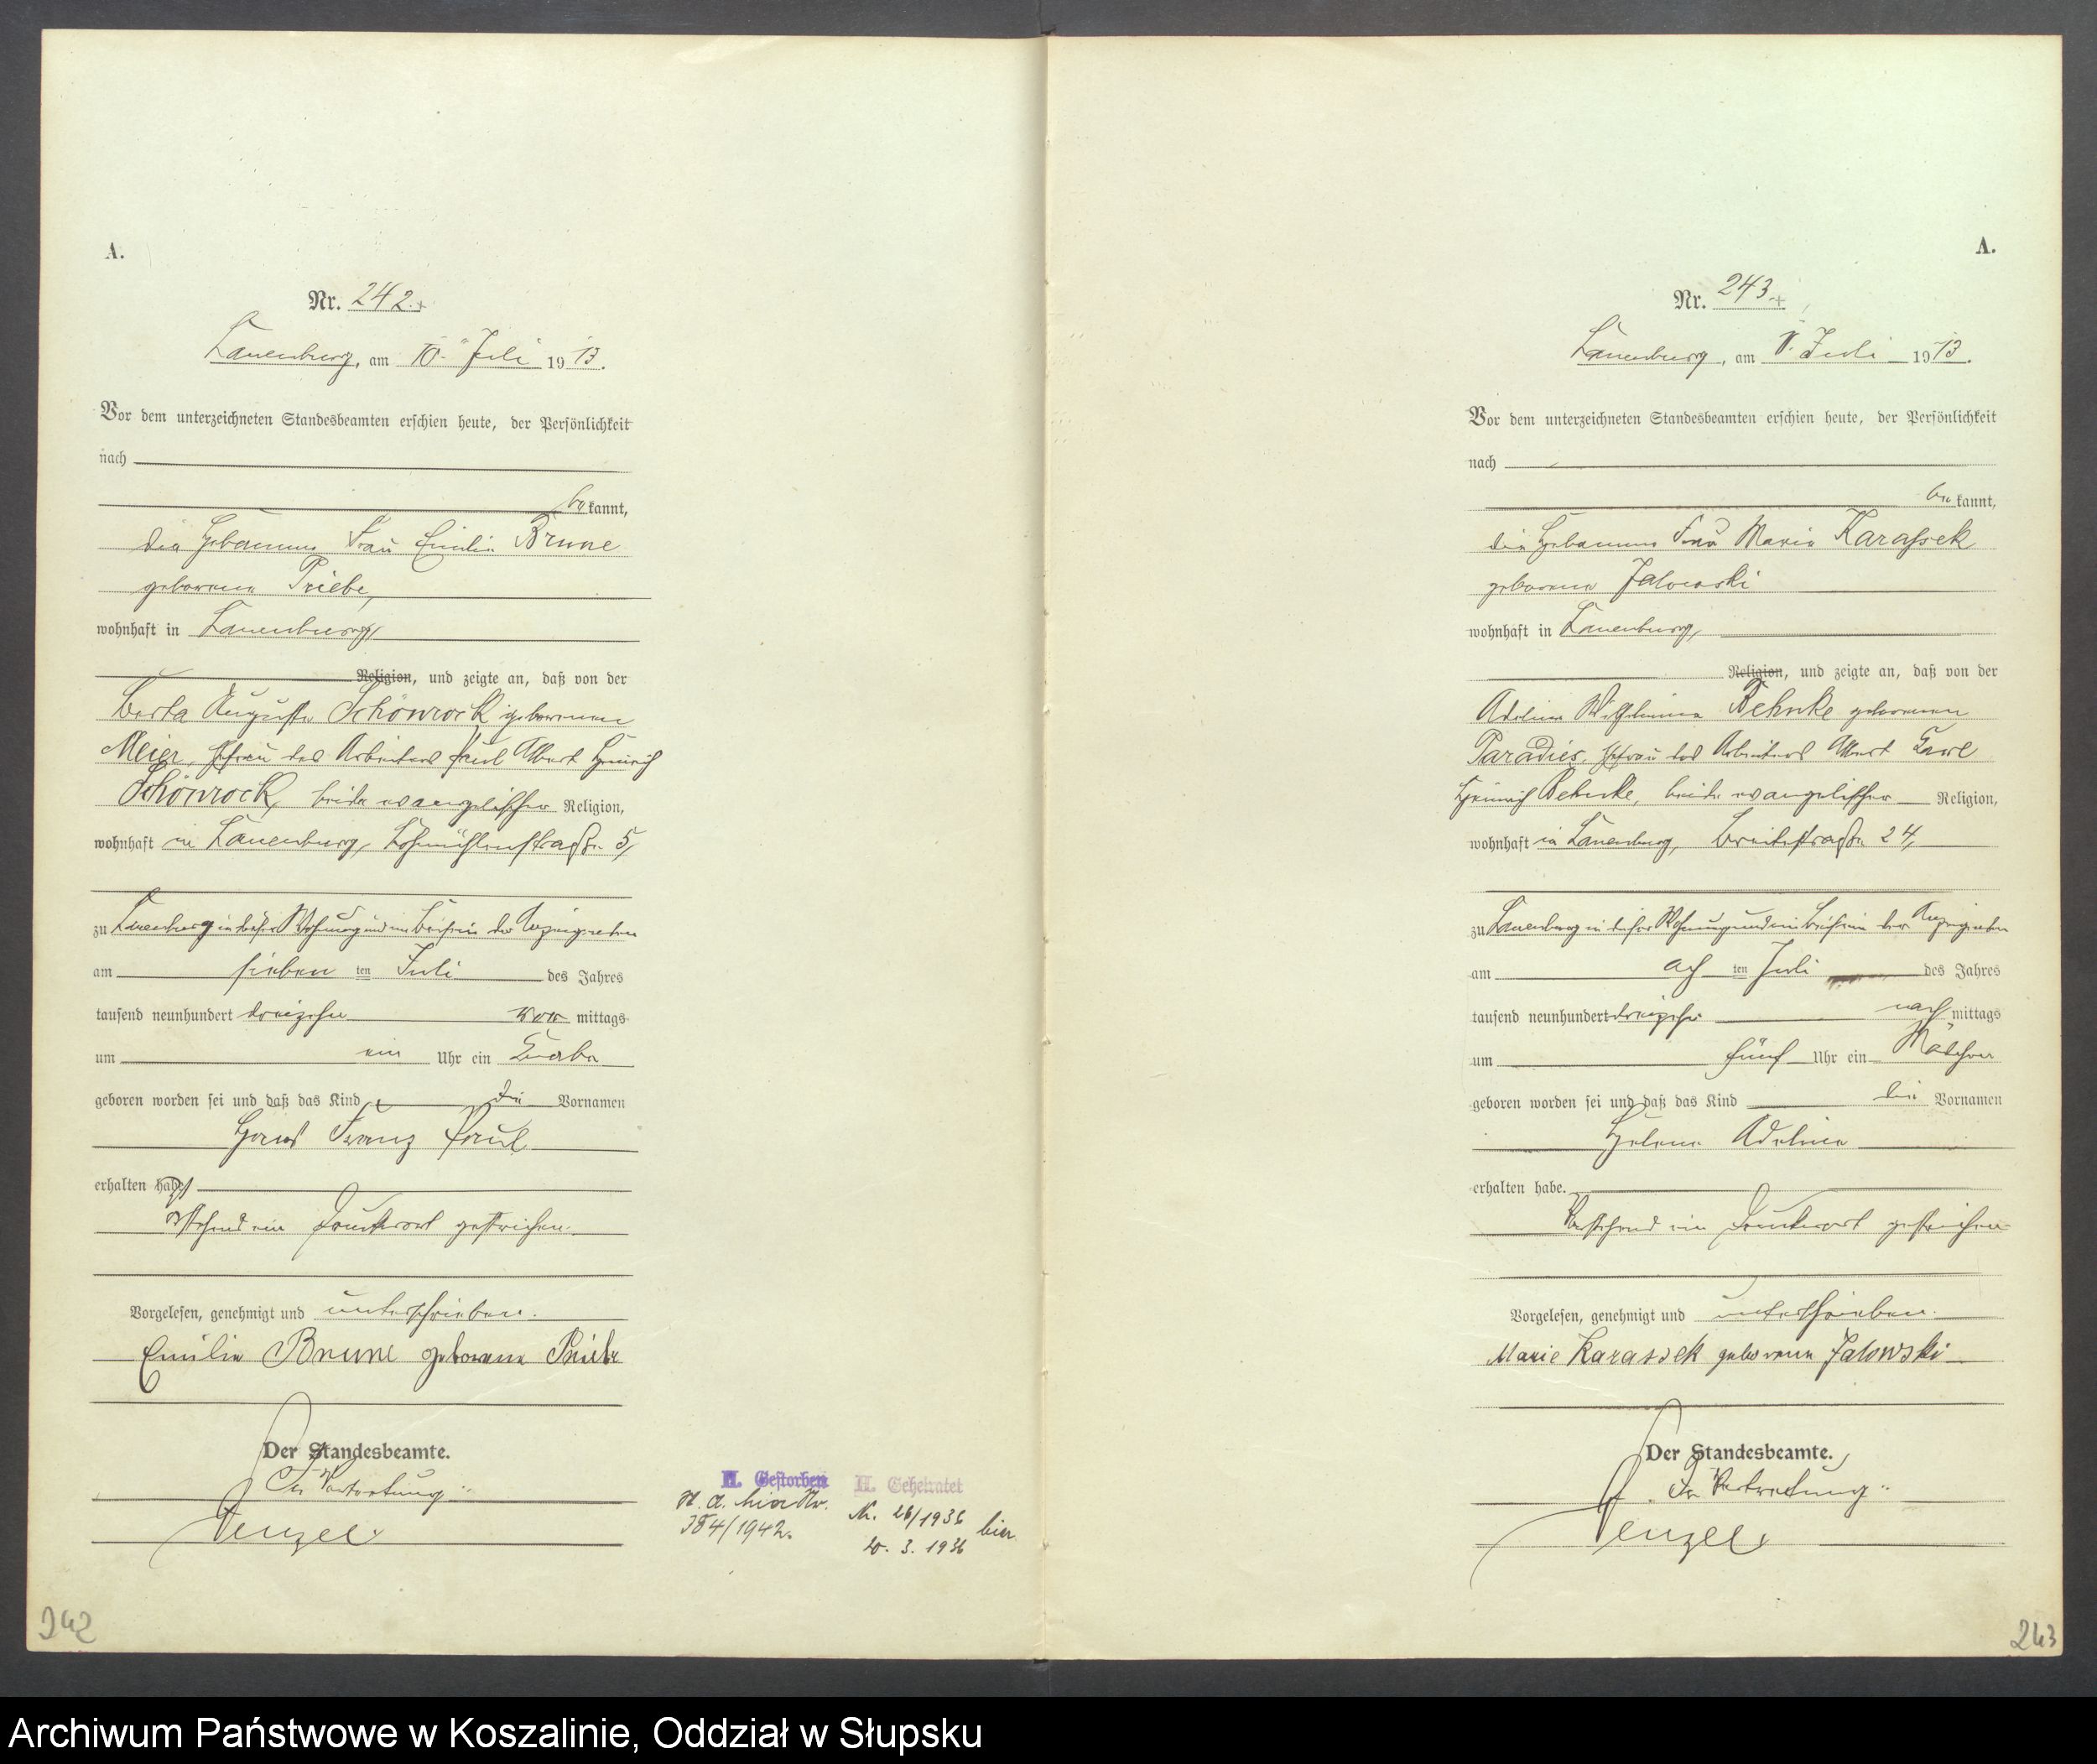 A.
Nr. 242.
Lauenburg, am 10. Juli 1913.
Vor dem unterzeichneten Standesbeamten erschien heute, der Persönlichkeit
nach
be kannt,
die Hebamme Frau Emilie Brune
geborene Priebe,
wohnhaft in Lauenburg,
Religion, und zeigte an, daß von der
Berta Auguste Schönrock geborenen
Meier, Ehefrau des Arbeiters Paul Albert Heinrich
Schönrock, beide evangelischer Religion,
wohnhaft in Lauenburg, Lohmühlenstraße 5,
zu Lauenburg in dieser Wohnung und im Beisein der Anzeigenden
am sieben ten Juli des Jahres
tausend neunhundert dreizehn vor mittags
um ein Uhr ein Knabe
geboren worden sei und daß das Kind die Vornamen
Hans Franz Paul
erhalten habe
Vorstehend ein Druckwort gestrichen.
Vorgelesen, genehmigt und unterschrieben.
Emilie Brune geborene Priebe
Der Standesbeamte.
In Vertretung:
Wenzel
H. Gestorben
St. A. hier Nr.
384/1942.
H. Geheiratet
Nr. 26/1936 hier
20. 3. 1936
242
A.
Nr. 243.
Lauenburg, am Juli 1913.
Vor dem unterzeichneten Standesbeamten erschien heute, der Persönlichkeit
nach
be kannt,
die Hebamme Frau Marie Karassek
geborene Jalowski
wohnhaft in Lauenburg,
Religion, und zeigte an, daß von der
Adeline Wilhelmine Behnke geborenen
Paradies, Ehefrau des Arbeiters Albert Karl
Heinrich Behnke, beide evangelischer Religion,
wohnhaft in Lauenburg, Breitestraße 24,
zu Lauenburg in dieser Wohnung und im Beisein der Anzeigenden
am ach ten Juli des Jahres
tausend neunhundert dreizehn nach mittags
um fünf Uhr ein Mädchen
geboren worden sei und daß das Kind die Vornamen
Helene Adeline
erhalten habe.
Vorstehend ein Druckwort gestrichen
Vorgelesen, genehmigt und unterschrieben.
Marie Karassek geborene Jalowski
Der Standesbeamte.
In Vertretung:
Wenzel
243
Archiwum Państwowe w Koszalinie, Oddział w Słupsku